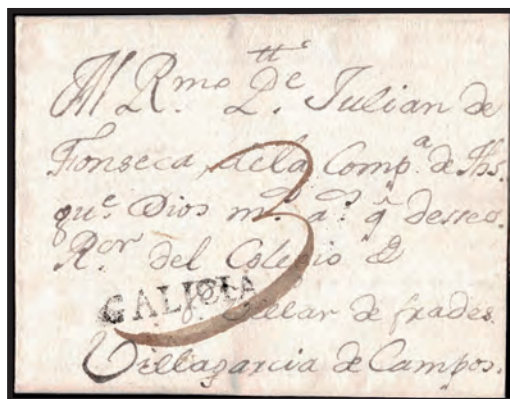 Al Rmo. Pe. Julian de
Fonseca, dela Compa. de Jhs.
que. Dios ms. as. q desseo.
Ror. del Colegio de
GALICIA
Villar de frades.
Villagarcia de Campos.
3